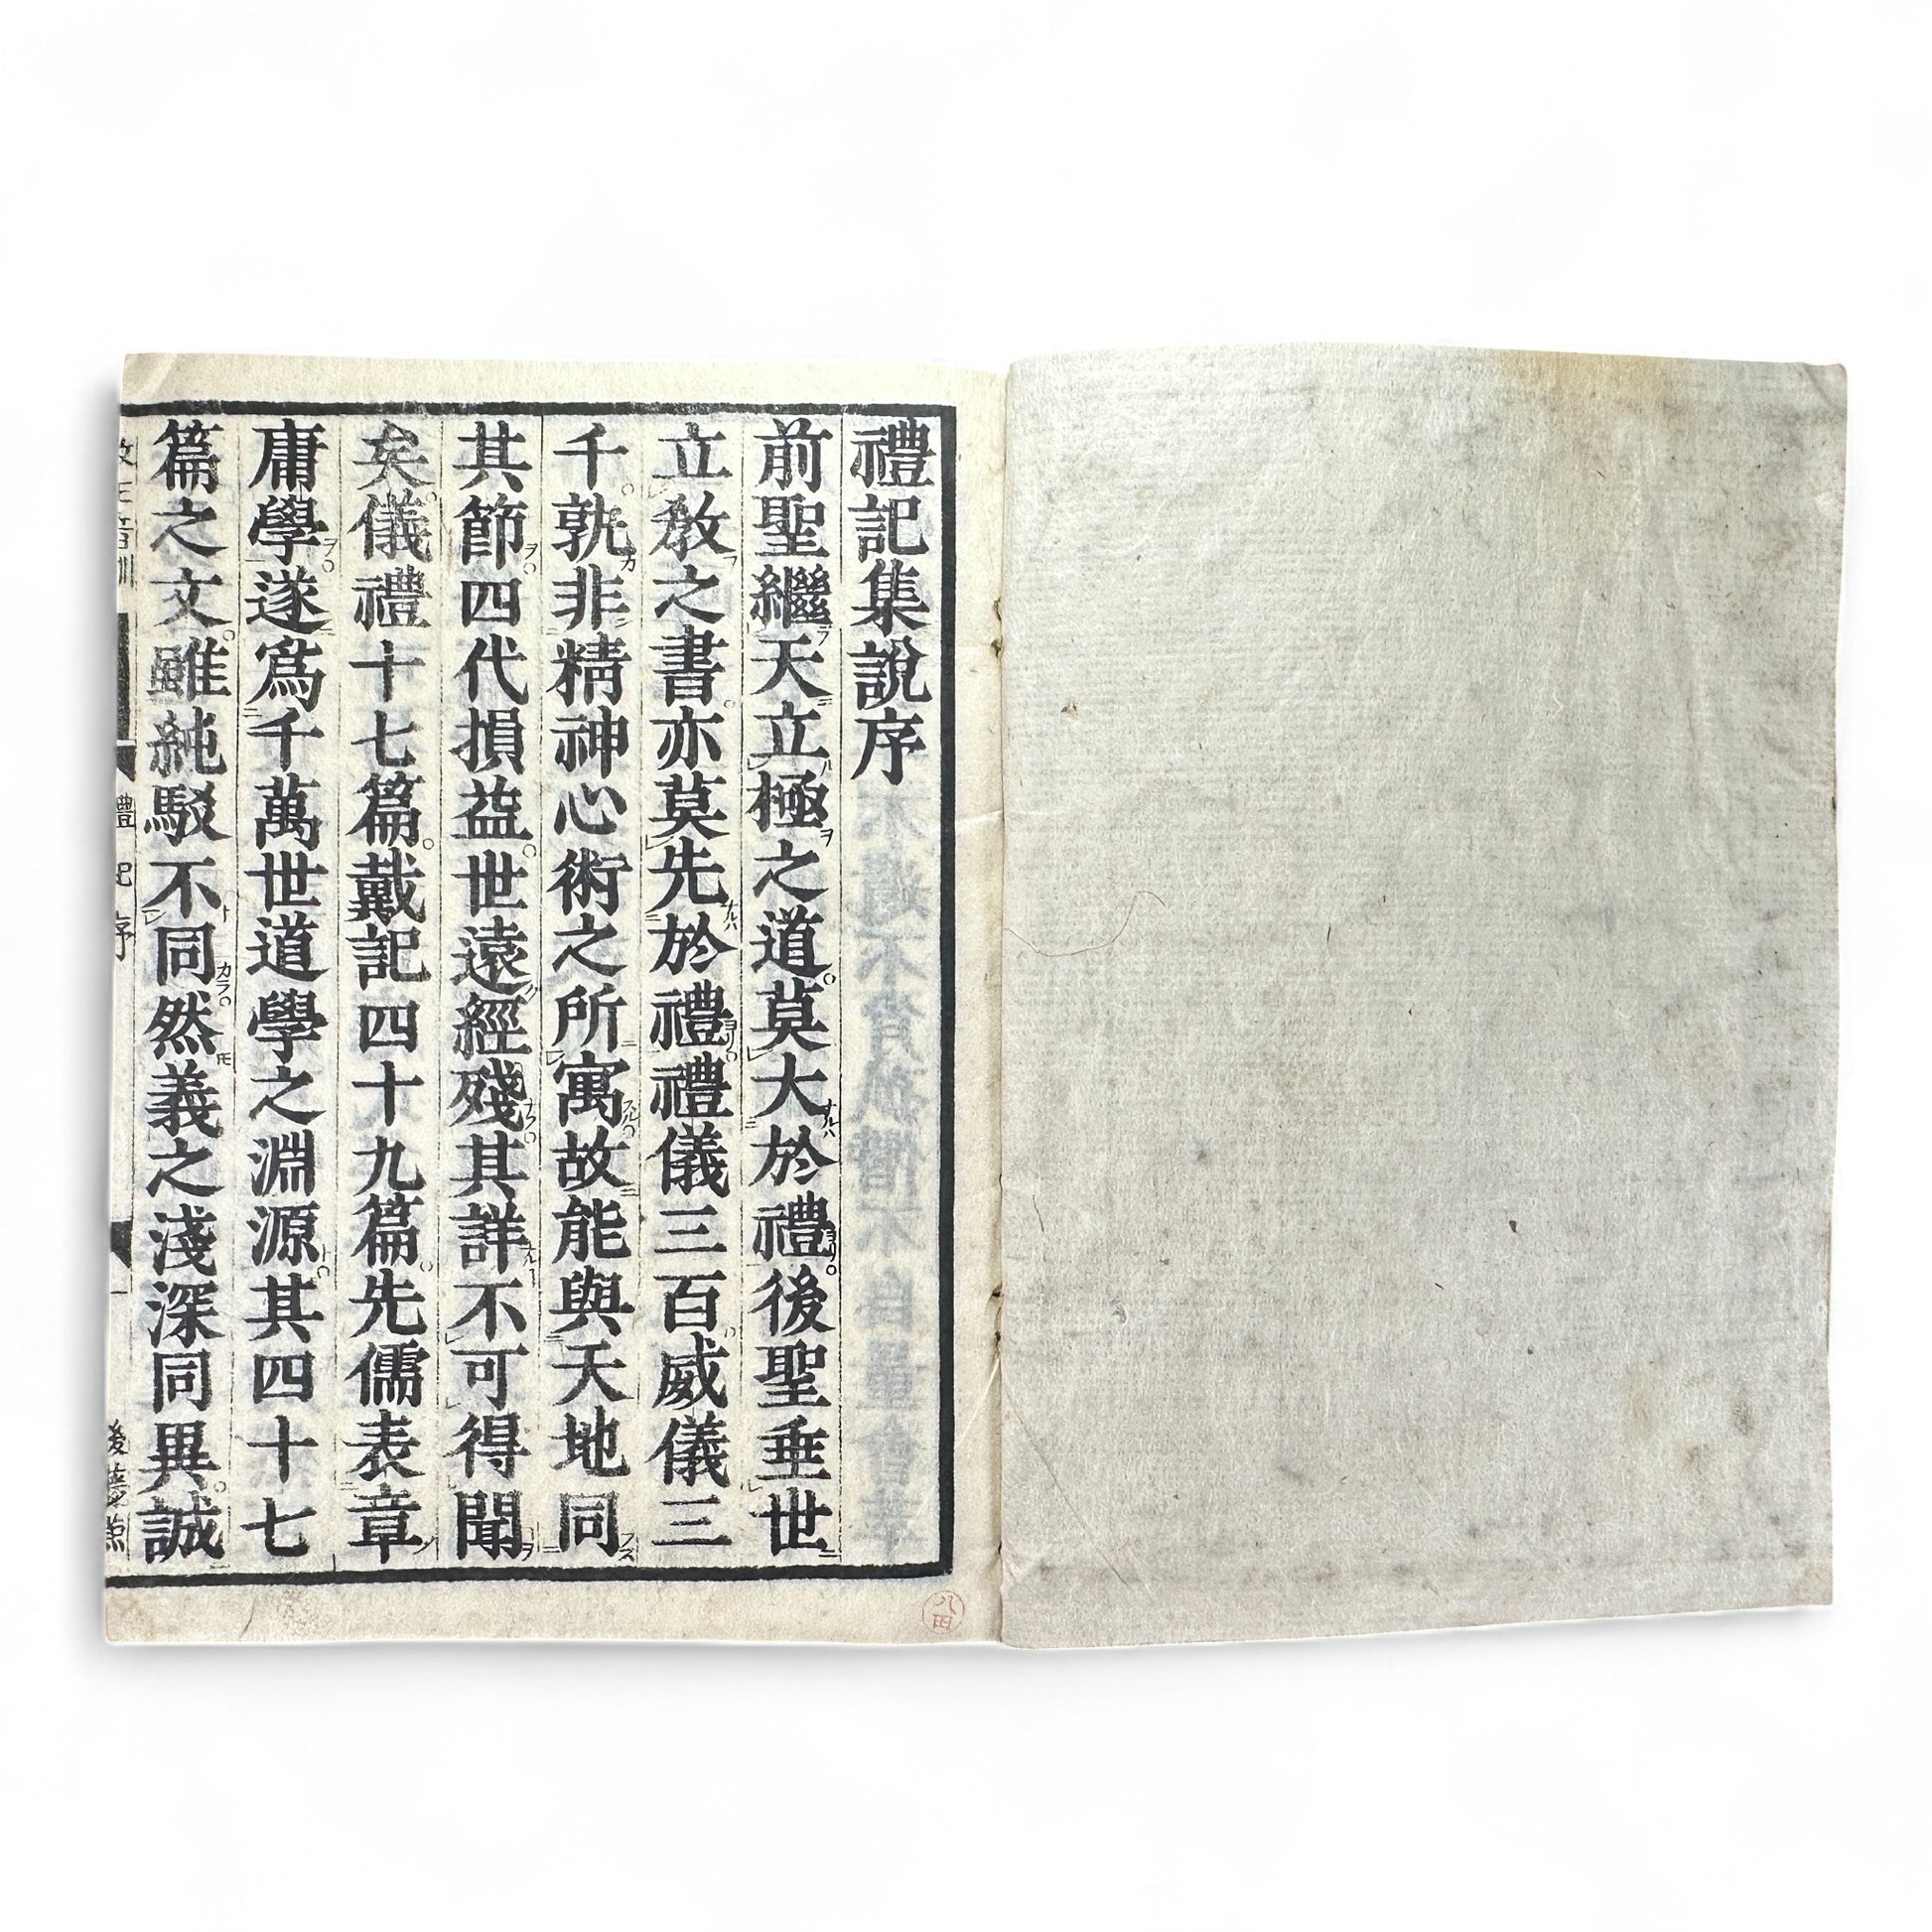 禮記集說序
前聖繼天立極之道莫大於禮後聖垂世
立敎之書亦莫先於禮禮儀三百威儀三
千孰非精神心術之所寓故能與天地同
其節四代損益世遠經殘其詳不可得聞
矣儀禮十七篇戴記四十九篇先儒表章
庸學遂爲千萬世道學之淵源其四十七
篇之文雖純駁不同然義之淺深同異誠
禮記序
一
後藤點
八田